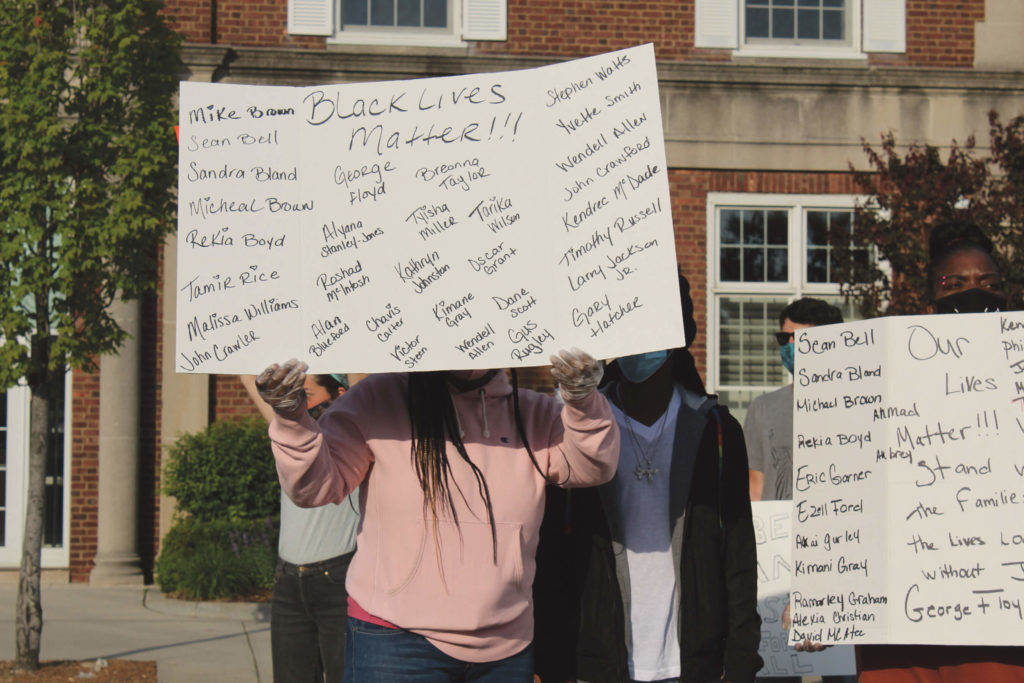 Black Lives
Matter!!!
Mike Brown
Sean Bell
Sandra Bland
Micheal Brown
Rekia Boyd
Tamir Rice
Malissa Williams
John Crawler
George
Floyd
Breonna
Taylor
Aiyana
Stanley-Jones
Tyisha
Miller
Tarika
Wilson
Roshad
McIntosh
Kathryn
Johnston
Oscar
Grant
Alan
Blueford
Chavis
Carter
Kimane
Gray
Dane
Scott
Victor
Steen
Wendell
Allen
Gus
Rugley
Stephen Watts
Yvette Smith
Wendell Allen
John Crawford
Kendrec McDade
Timothy Russell
Larry Jackson
Jr.
Gary
Hatchee
Sean Bell
Sandra Bland
Michael Brown
Rekia Boyd
Eric Garner
Ezell Ford
Akai gurley
Kimani Gray
Ramarley Graham
Alexia Christian
David McAtee
Ahmad
Arbrey
Our
Lives
Matter!!!
Stand
the Families
the Lives
without
George Floy